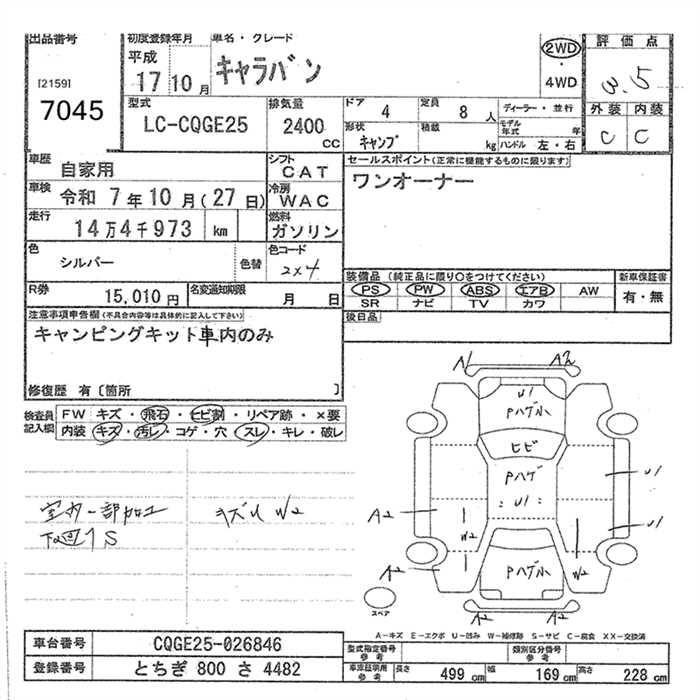 出品番号
[2159]
7045
初度登録年月
平成
17 10月
車名・グレード
キャラバン
2WD
・
4WD
評価点
3.5
外装 内装
C C
型式
LC-CQGE25
排気量
2400 CC
ドア 4
定員 8人
ディーラー・並行
モデル年式 年
形状 キャンプ
積載 kg
ハンドル 左・右
車歴
自家用
シフト
CAT
セールスポイント(正常に機能するものに限ります)
ワンオーナー
車検
令和 7年10月(27日)
冷房
WAC
走行
14万4千973 km
燃料
ガソリン
色
シルバー
色替
色コード
2x4
装備品 (純正品に限り○をつけてください)
新車保証書
PS PW ABS エアB AW
有・無
SR ナビ TV カワ
R券
15,010円
名変通知期限
月 日
後日品
注意事項申告欄(不具合内容等は具体的に記入して下さい)
キャンピングキット車内のみ
修復歴 有〔箇所 〕
検査員記入欄
FW キズ・飛石・ヒビ割・リペア跡・×要
内装 キズ・汚レ・コゲ・穴・スレ・キレ・破レ
室内一部加工
下回りS
キズU W2
A1 A2
U1
Pハゲル
ヒビ
Pハゲ
U1
U1
A2
W2
U1
W2
A2
Pハゲル
A2 A2
スペア
A-キズ E-エクボ U-凹み W-補修跡 S-サビ C-腐食 XX-交換済
車台番号
CQGE25-026846
登録番号
とちぎ 800 さ 4482
型式指定番号
参考
類別区分番号
参考
車庫証明用
参考
長さ 499cm
幅 169cm
高さ 228cm